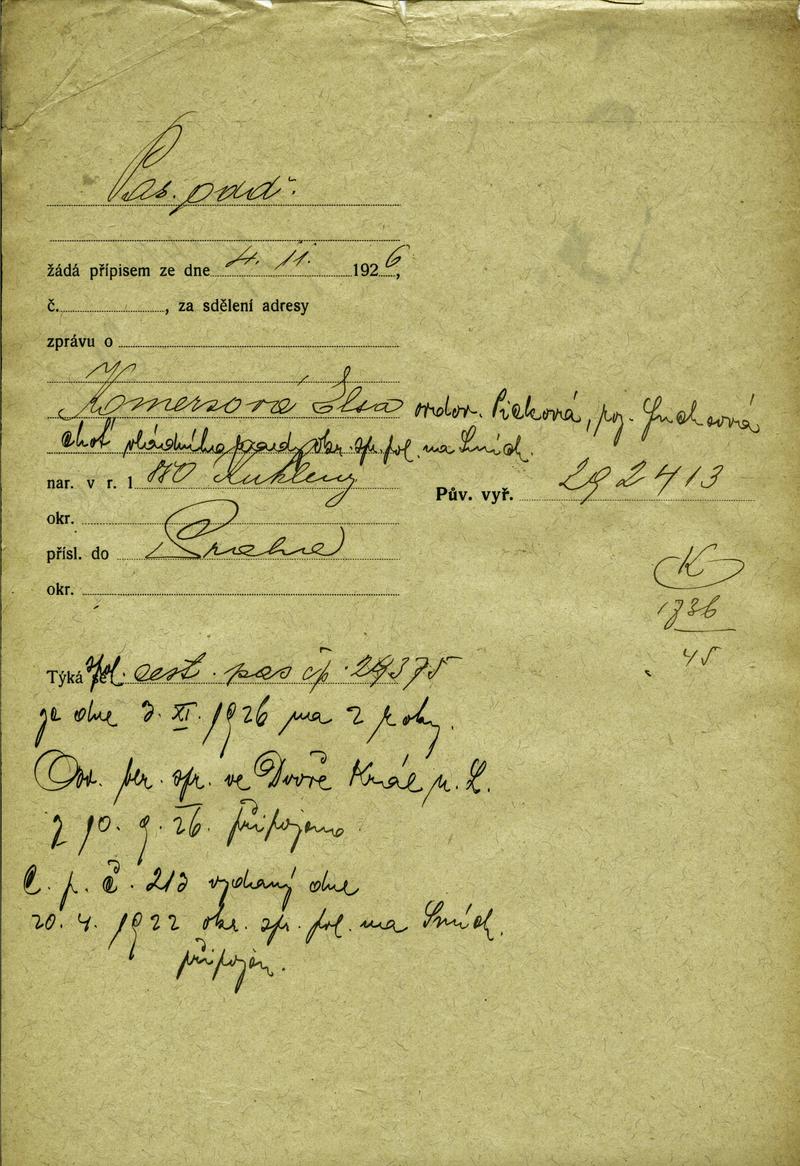 Pas. odd.
žádá přípisem ze dne 4. 11. 1926,
č. , za sdělení adresy
zprávu o
Komersová Elsa ovdov. Picková, roz. Fuchsová
choť vládního rady okr. spr. pol. na Smích.
nar. v r. 1880 Kukleny
Pův. vyř. 292413
okr.
přísl. do Praha
okr.
K
1736
45
Týká se: cest. pas čp. 29375
ze dne 3. XI. 1926 na 2 roky.
Osv. ber. spr. ve Dvoře Král n. L.
z 10. 9. 26. připojeno
C. p. č. 213 vydaný dne
20. 4. 1922 okr. spr. pol. na Smích.
připojen.